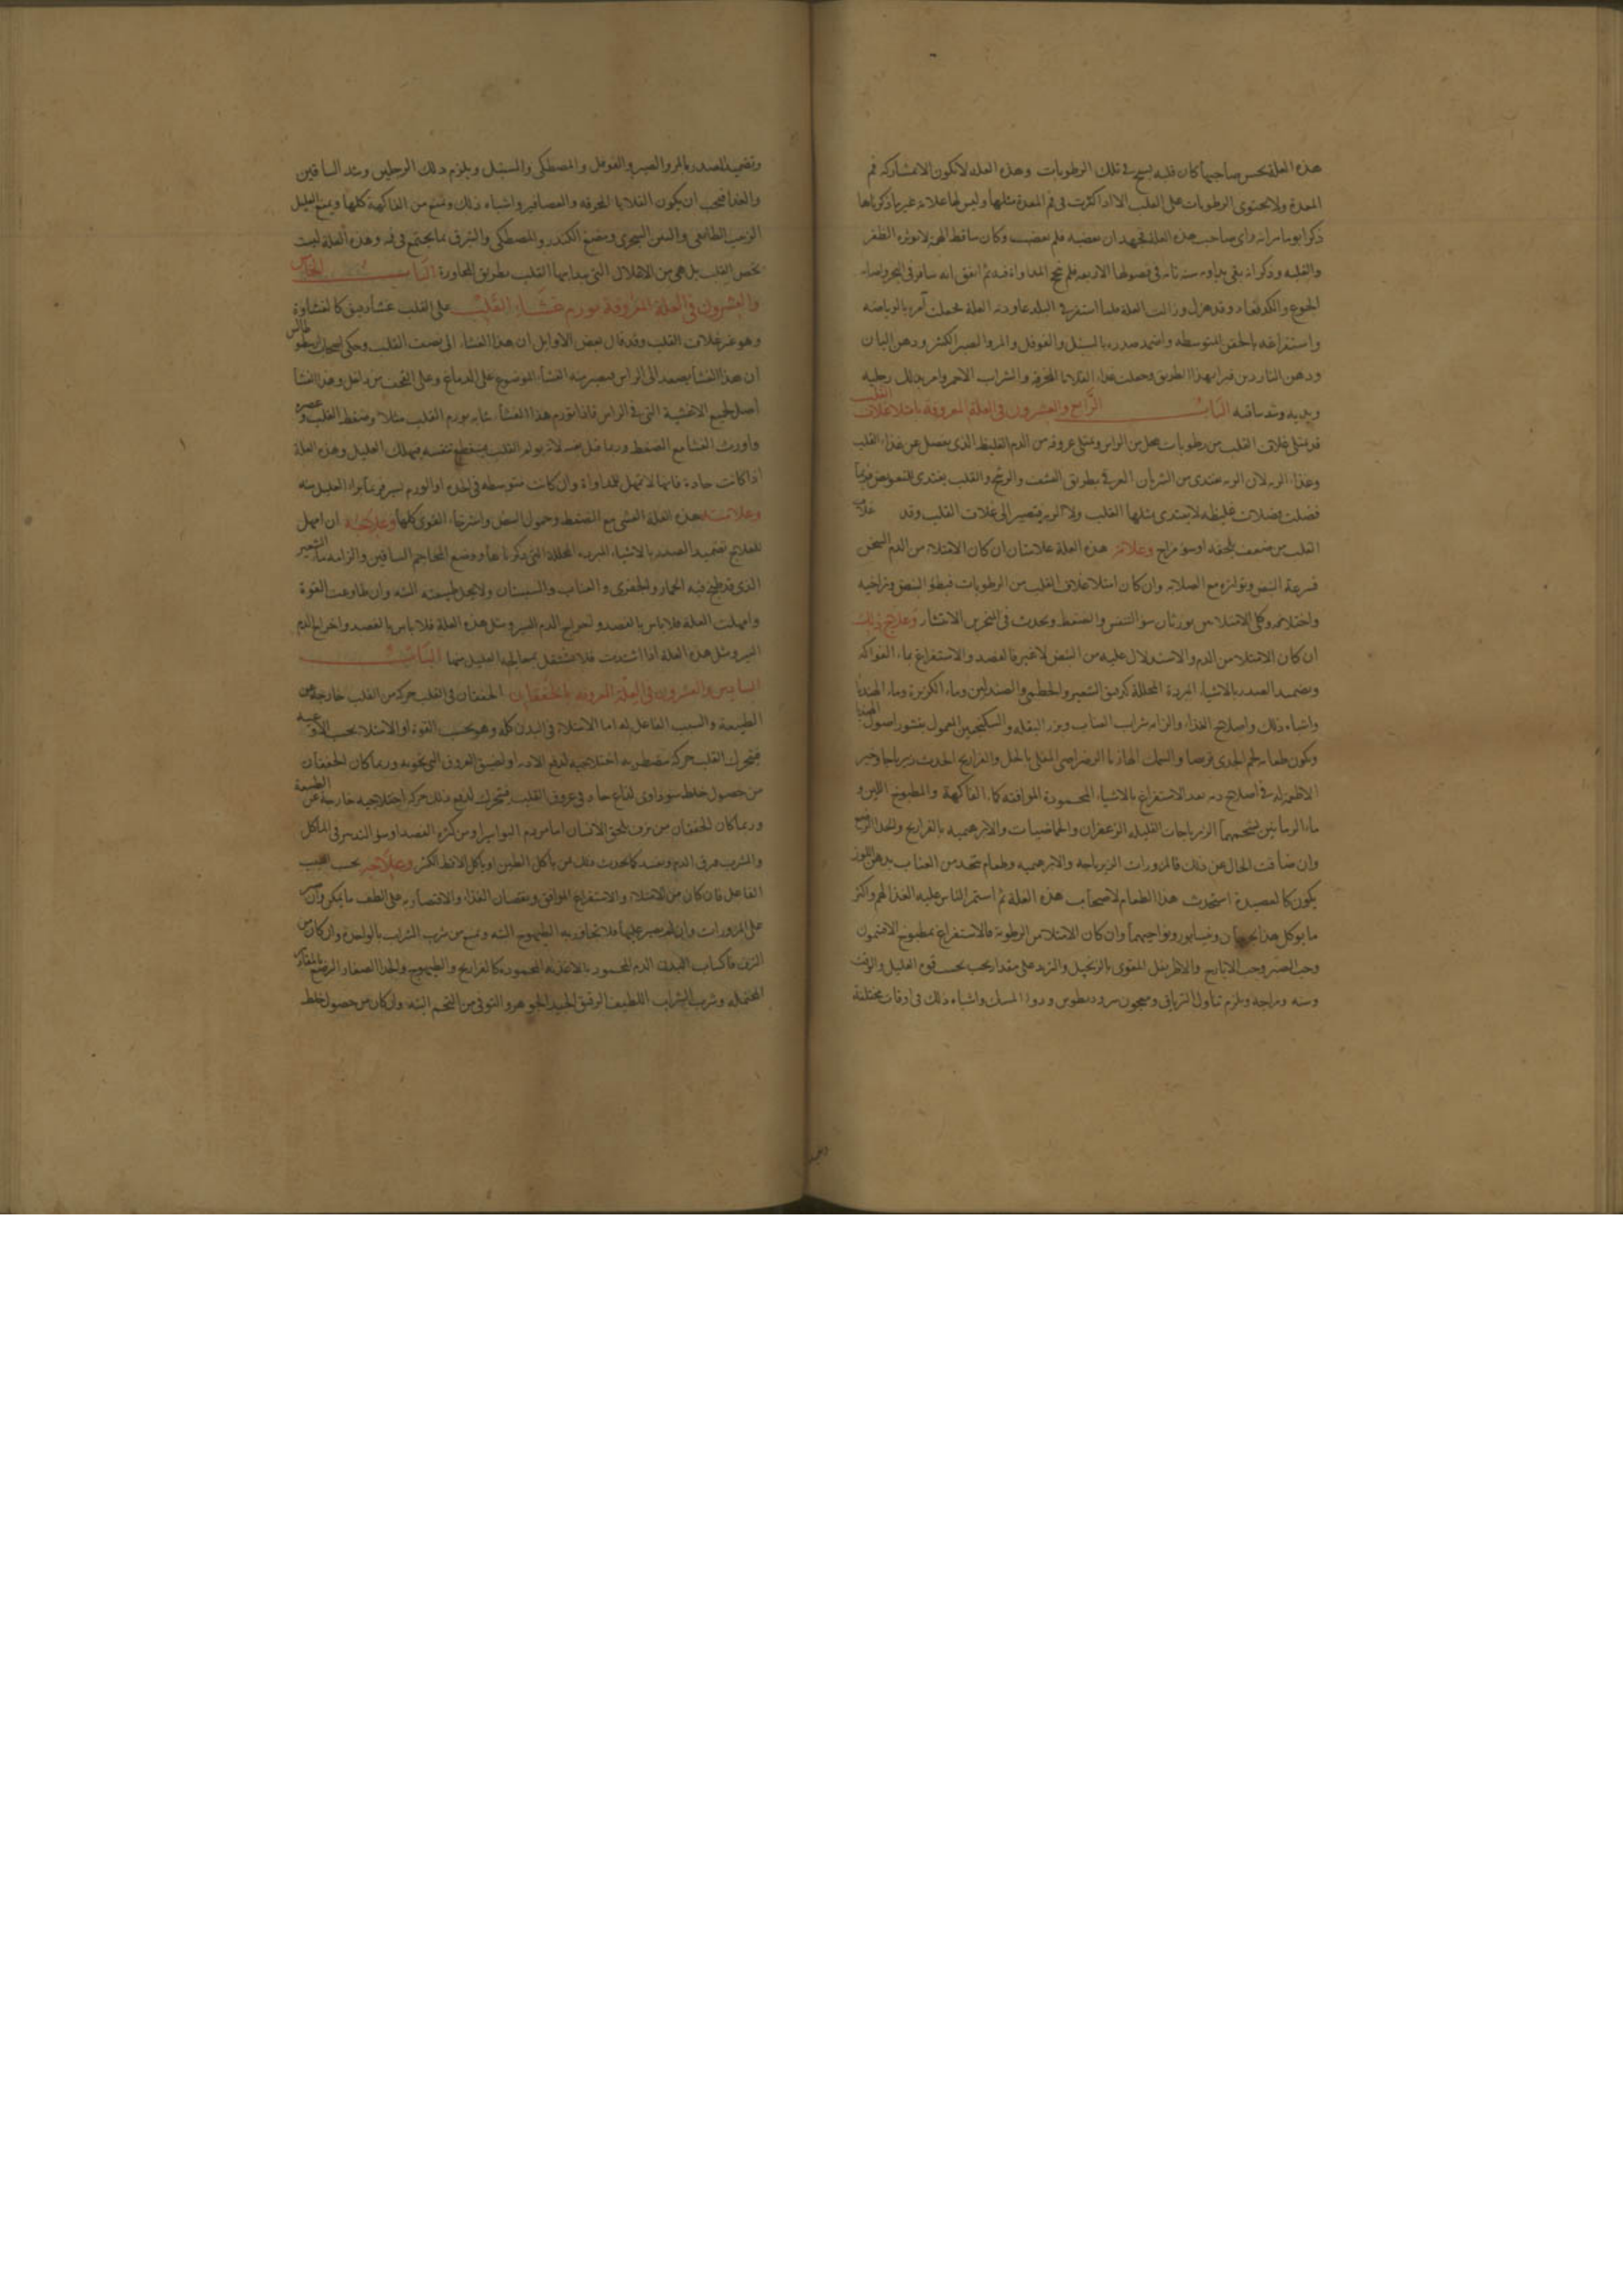 هذه العلة يحس صاحبها كان قلبه يسبح في تلك الرطوبات وهذه العله لا تكون الا بمشاركه فم
المعدة ولا يحتوى الرطوبات على القلب الا اذا كثرت في فم المعدة مثلها وليس لها علامة غير ما ذكرناها
ذكر ابو ماهر انه راى صاحب هذه العلة يجهد ان يغضبه فلم يغضب وكان ساقط الهمة لا يوثر الظفر
والغلبه وذكر انه بقى يداويه سنة تامه في فصولها الاربعه فلم تنجح المداواة فيه ثم اتفق انه سافر في البحر واصابه
الجوع والكد فعاد وقد هزل وزالت العلة فلما استقر في البلد عاودته العلة فجعلت آمره بالرياضه
واستفراغه بالحقن المتوسطه واضمد صدره بالسنبل والقرنفل والمر والصبر الكثير ودهن البان
ودهن الناردين فبرا بهذا الطريق وجعلت غذاه القلايا المحرقه والشراب الاحمر وامر بدلك رجليه
ويديه وشد ساقيه الباب الرابع والعشرون في العلة المعروفة بامتلا غلاف القلب
قد يمتلى غلاف القلب من رطوبات تنحل من الراس ويمتلى عروقه من الدم الغليظ الذي يفضل عن غذاء القلب
وغذاء الريه لان الريه تغتدى من الشريان العرقى بطريق النشف والرشح والقلب يغتدى
فضلت فضلات غليظه لا يغتدى بمثلها القلب ولا الريه فتصير الى غلاف القلب وقد
القلب من ضعف يلحقه او سؤ مزاج وعلامة هذه العلة علامتان ان كان الامتلاء من الدم السخن
فسرعة النبض وتواتره مع الصلابه وان كان امتلا غلاف القلب من الرطوبات فبطؤ النبض وتراخيه
واختلافه وكلى الامتلاس يورثان سؤ التنفس والضغط ويحدث في المنخرين الانتشار وعلاج ذلك
ان كان الامتلا من الدم والاستدلال عليه من النبض لا غير فالفصد والاستفراغ بماء الفواكه
وتضميد الصدر بالاشياء المبردة المحللة كدقيق الشعير والخطمى والصندلين وماء الكزبرة وماء الهندبا
واشباه ذلك واصلاح الغذاء والزامه شراب العناب وبزر البقله والسكنجبين المعمول بقشور اصول الهندبا
ويكون طعامه لحم الجدى قريصا والسمك المقلى بالخل والفراريج الحدث زيرباجا وخير
الاطعمة له في اصلاح دمه بعد الاستفراغ بالاشياء المحمودة الموافقه كماء الفاكهة والمطبوخ اللين و
ماء الرمانين بشحمهما الزيرباجات القليله الزعفران والحماضيات والابرهيميه بالفراريج والجدا الرضع
وان ضاقت الحال عن ذلك فالمزورات الزيرباجه والابرهيميه وطعام يتخذ من العناب بدهن اللوز
يكون كالعصيدة استحدث هذا الطعام لاصحاب هذه العلة ثم استمر الناس عليه لغذا لهم واكثر
ما يوكل هذا بجرجان ونيسابور ونواحيهما وان كان الامتلا من الرطوبة فالاستفراغ بمطبوخ الافتيمون
وحب الصبر وحب الايارج والاطريفل المقوى بالزنجبيل والتربد على مقدار يجب بحسب قوه العليل والوقت
وسنه ومزاجه ويلزم تناول الترياق ومعجون مثروديطوس ودوا المسك واشباه ذلك في اوقات مختلفة
وتضميد الصدر بالمر والصبر والقرنفل والمصطكى والسنبل ويلزم دلك الرجلين وشد الساقين
والغذا فيجب ان يكون القلايا المحرقه والعصافير واشباه ذلك ويمنع من الفاكهة كلها ويمنع العليل
الزبيب الطايفى والتين البحرى ومضغ الكندر والمصطكى والتبزق بما يجتمع في فمه وهذه العلة ليست
تخص القلب بل هي من الاعلال التي يبدا بها القلب بطريق المجاورة الباب الخامس
والعشرون في العلة المعروفة بورم غشاء القلب على القلب غشا رقيق كالغشاوة
وهو غير غلاف القلب وقد قال بعض الاوايل ان هذا الغشاء الى نصف القلب وحكى ارسطوطالس
ان هذا الغشا يصعد الى الراس فيصير منه الغشاء الموضوع على الدماغ وعلى القحف من داخل وهذا الغشا
اصل لجميع الاغشية التي في الراس فاذا تورم هذا الغشاء شابه بورم القلب مثلا وضغط القلب وعصره
واورث الغشا مع الضغط وربما قتل بغتة لانه يولم القلب فينقطع تنفسه فيهلك العليل وهذه العلة
اذا كانت حادة فانها لا تمهل للمداواة وان كانت متوسطه في الحده او الورم يسير فربما برا العليل منه
وعلامة هذه العلة الغشى مع الضغط وخمول النبض واسترخاء القوى كلها وعلاجه ان امهل
للعلاج تضميد الصدر بالاشياء المبرده المحللة التي ذكرناها ووضع المحاجم الساقين والزامه ماء الشعير
الذي قد طبخ فيه الخيار والجفرى والعناب والسبستان ولا يحل طبيعته البته وان طاوعت القوة
وامهلت العلة فلا باس بالفصد واخراج الدم اليسير ومثل هذه العلة فلا باس بالفصد واخراج الدم
اليسير ومثل هذه العلة اذا اشتدت فلا تشتغل بمعالجة العليل منها الباب
السادس والعشرون في العلة المعروفة بالخفقان الخفقان في القلب حركة من القلب خارجة عن
الطبيعة والسبب الفاعل له اما الامتلاء في البدن كله وهو بحسب القوة او الامتلا بحسب الاوعيه
فيتحرك القلب حركة مضطربه اختلاجيه لدفع الاذيه او لضيق العروق التي تخويه وربما كان الخفقان
من حصول خلط سوداوى لذاع حاد في عروق القلب فيتحرك لدفع ذلك حركة اختلاجيه خارجه عن الطبيعة
وربما كان الخفقان من نزف يلحق الانسان اما من دم البواسير او من كثره الفصد او سؤ التدبير في المأكل
والمشرب فيرق الدم ويفسد كما يحدث ذلك لمن ياكل الطين او ياكل الاقط الكثير وعلاجه بحسب السبب
الفاعل فان كان من الامتلاء والاستفراغ الموافق ونقصان الغذاء والاقتصار به على الطف ما يمكن وان صبر
على المزورات وان لم يصبر عليها فلا تجاوز به الطيهوج البته ويمنع من شرب الشراب بالواحدة وان كان من
النزف فاكساب البدن الدم المحمود بالاغذيه المحموده كالفراريج والطيهوج والجدا الصغار الرضع بالمقادير
المحتمله وشرب الشراب اللطيف الرقيق الجيد الجوهر والتوقى من التخم البتة وان كان من حصول خلط